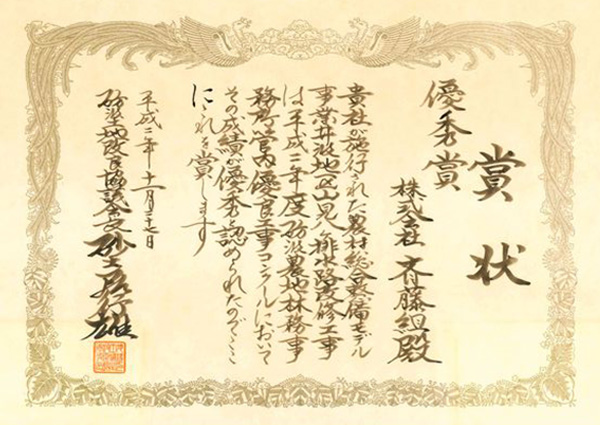 賞状
優秀賞
株式会社 斉藤組殿
貴社が施行された農村総合整備モデル
事業井波地区山見八ヶ排水路改修工事
は平成二年度砺波農地林務事
務所管内優良工事コンクールにおいて
その成績が優秀と認められたのでここ
にこれを賞します
平成二年十一月二十七日
砺波土地改良協議会会長